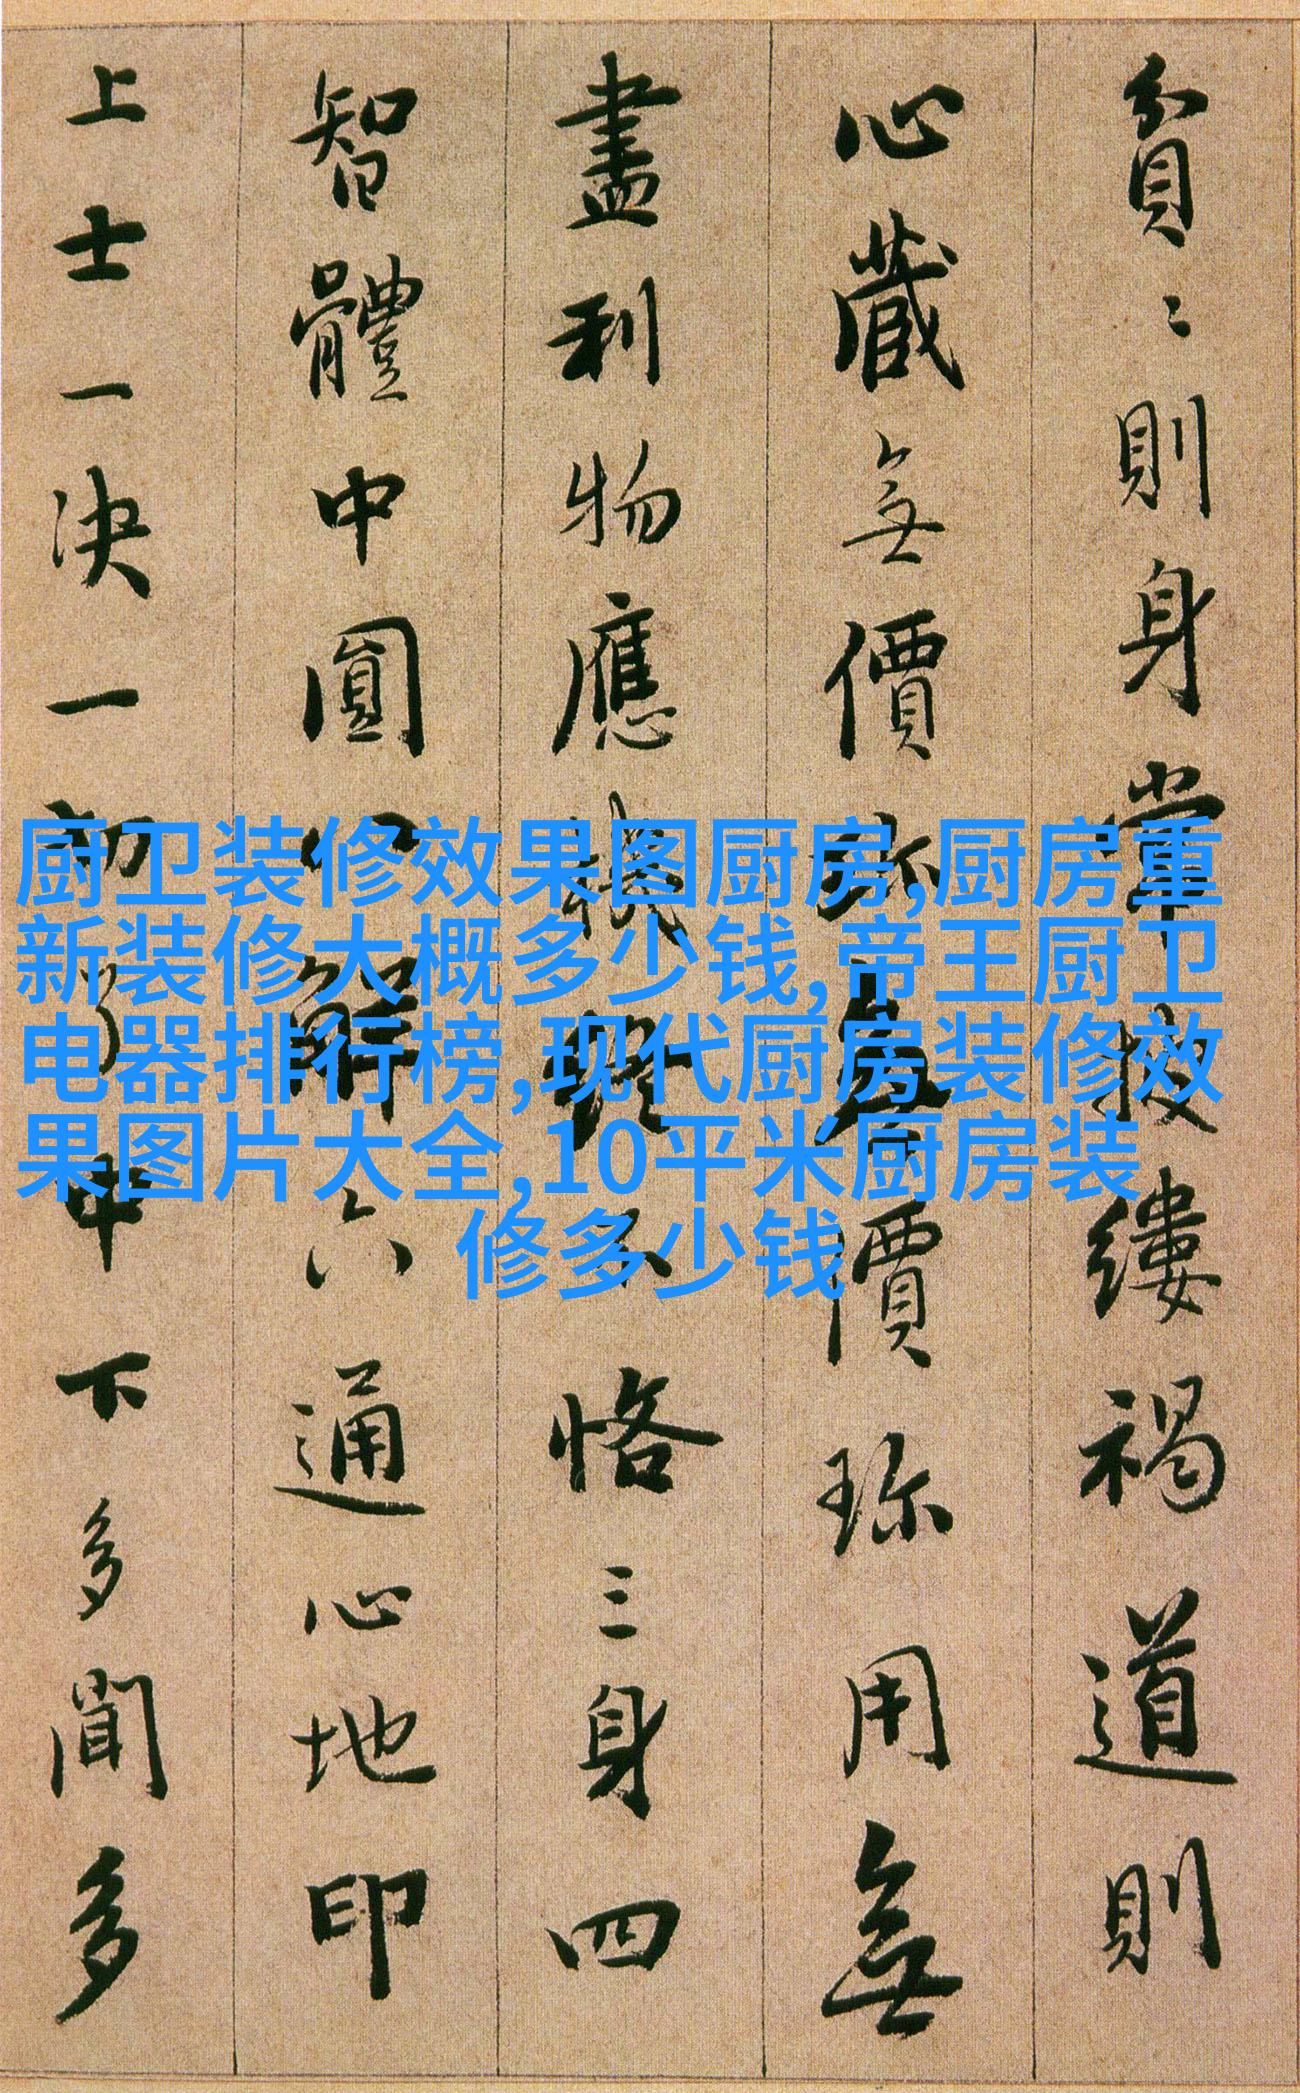 貧〻〻則身常披縷褐道則
心藏無價珎無價珎用無
盡利物應機不恪三身四
智體中圓八解六通心地印
上士一决一切了中下多聞多
厨卫装修效果图厨房,厨房重
新装修大概多少钱,帝王厨卫
电器排行榜,现代厨房装修效
果图片大全,10平米厨房装
修多少钱